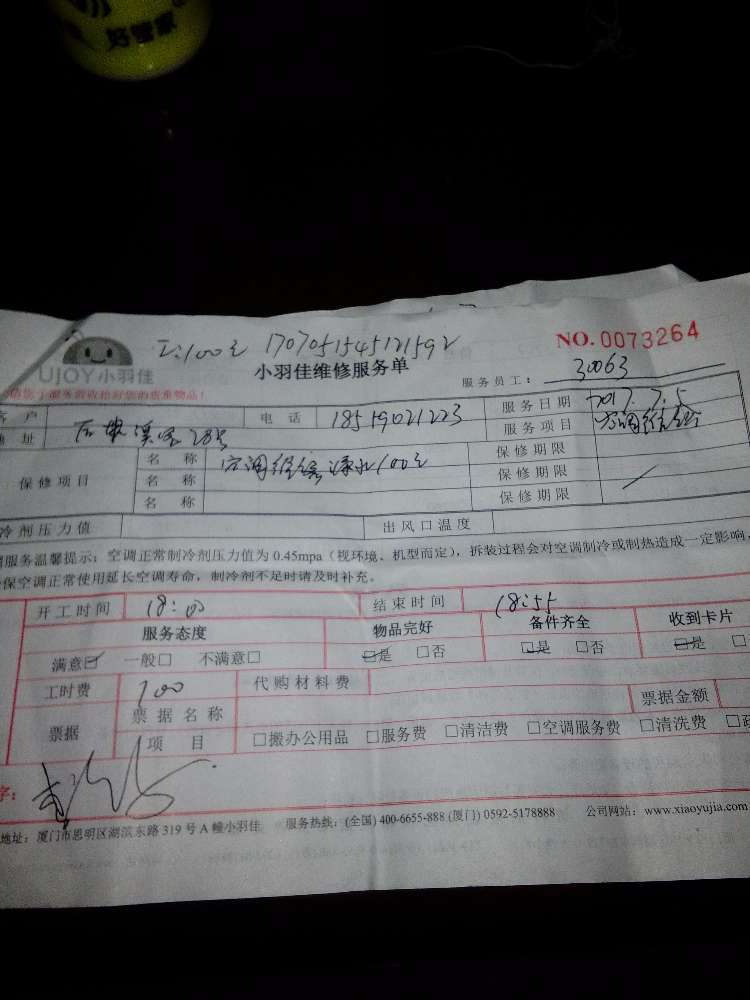 好管家
工:100元 1707051545121592
NO. 0073264
UJOY小羽佳
小羽佳维修服务单
服务员工: 30063
客户
电话 18519021223
服务日期 2017.7.5
地址
285
服务项目 空调维修
保修项目
名称 空调维修漏水100元
保修期限
名称
保修期限
名称
保修期限
冷剂压力值
出风口温度
调服务温馨提示:空调正常制冷剂压力值为 0.45mpa(视环境、机型而定),拆装过程会对空调制冷或制热造成一定影响,
保空调正常使用延长空调寿命,制冷剂不足时请及时补充。
开工时间 18:00
结束时间 18:55
服务态度 物品完好 备件齐全 收到卡片
满意☑ 一般□ 不满意□ ☑是 □否 ☑是 □否 ☑是 □
工时费 100 代购材料费
票据 票据名称 票据金额
项目 □搬办公用品 □服务费 □清洁费 □空调服务费 □清洗费
字:
地址:厦门市思明区湖滨东路 319 号 A 幢小羽佳 服务热线:(全国) 400-6655-888 (厦门) 0592-5178888 公司网站:www.xiaoyujia.com